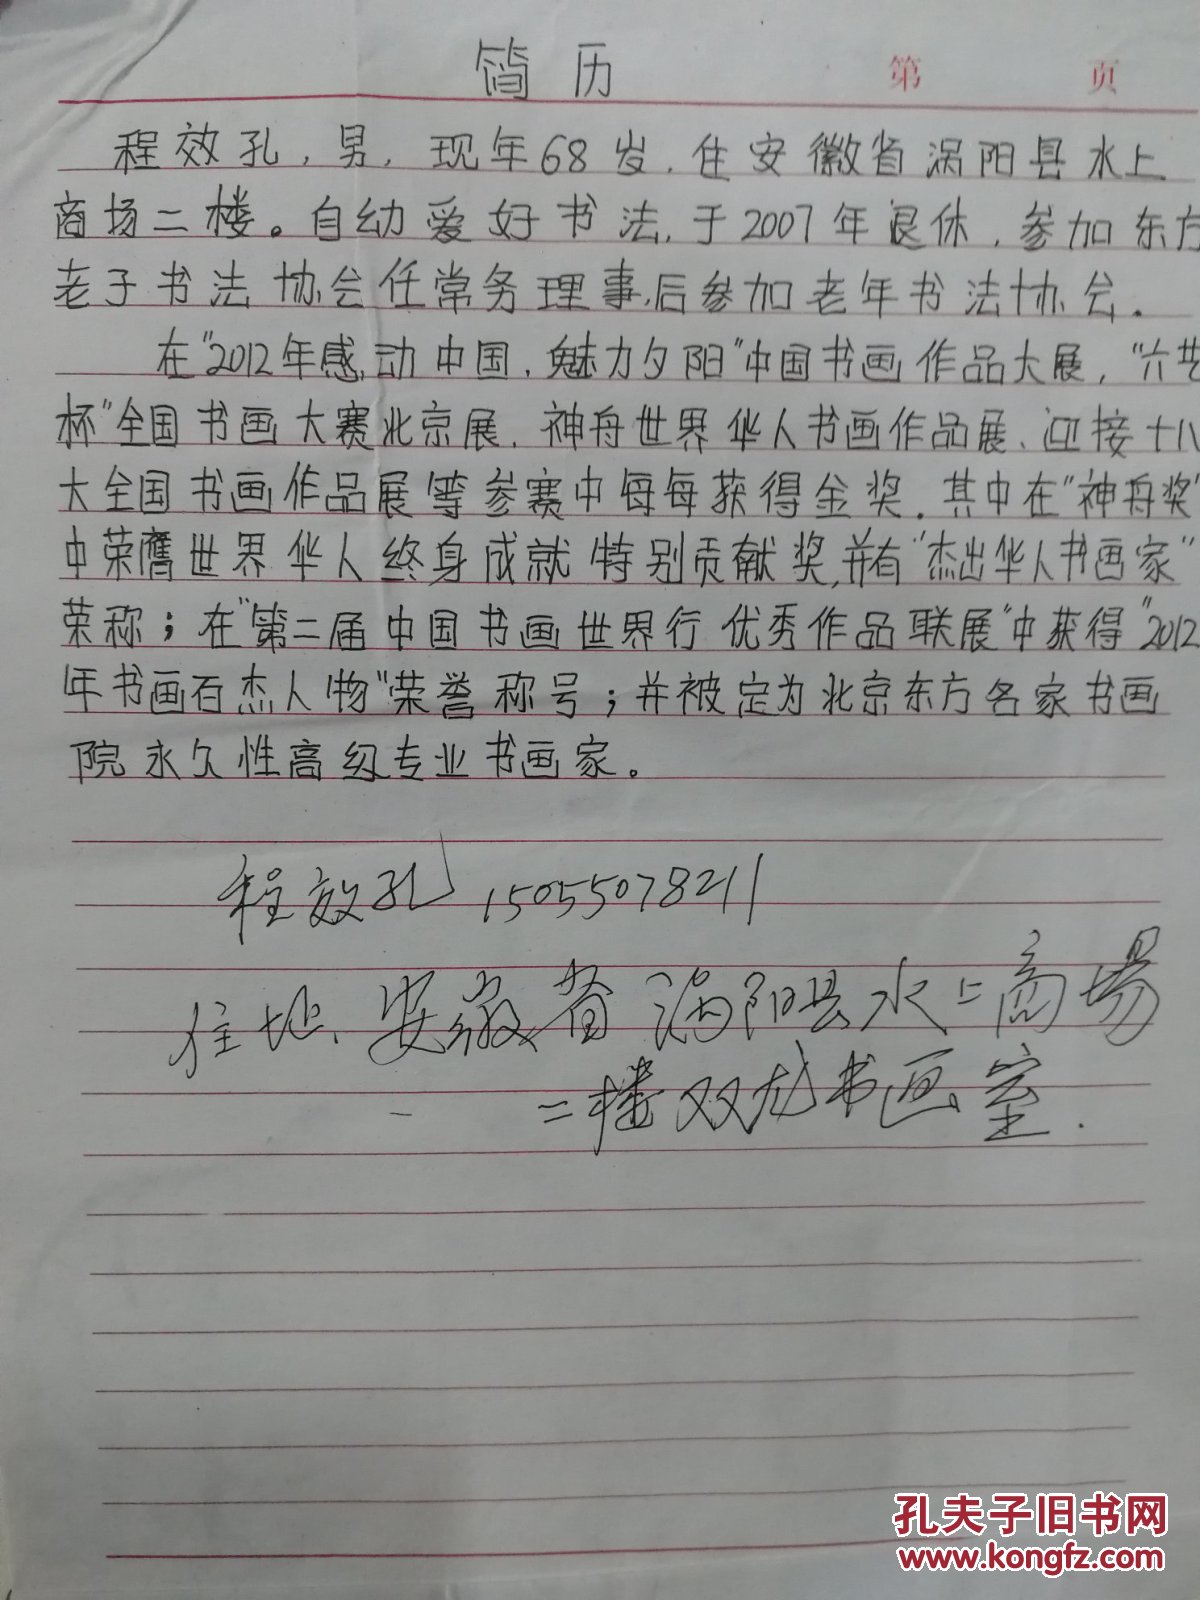 简历
第 页
程效孔,男,现年68岁,住安徽省涡阳县水上
商场二楼。自幼爱好书法,于2007年退休,参加东方
老子书法协会任常务理事,后参加老年书法协会.
在"2012年感动中国,魅力夕阳"中国书画作品大展,"六艺
杯"全国书画大赛北京展、神舟世界华人书画作品展、迎接十八
大全国书画作品展等参赛中每每获得金奖.其中在"神舟奖"
中荣膺世界华人终身成就特别贡献奖,并有"杰出华人书画家"
荣称;在"第二届中国书画世界行优秀作品联展"中获得"2012
年书画百杰人物"荣誉称号;并被定为北京东方名家书画
院永久性高级专业书画家。
程效孔 15055078211
住地、安徽省涡阳县水上商場
二楼双龙书画室.
孔夫子旧书网
www.kongfz.com